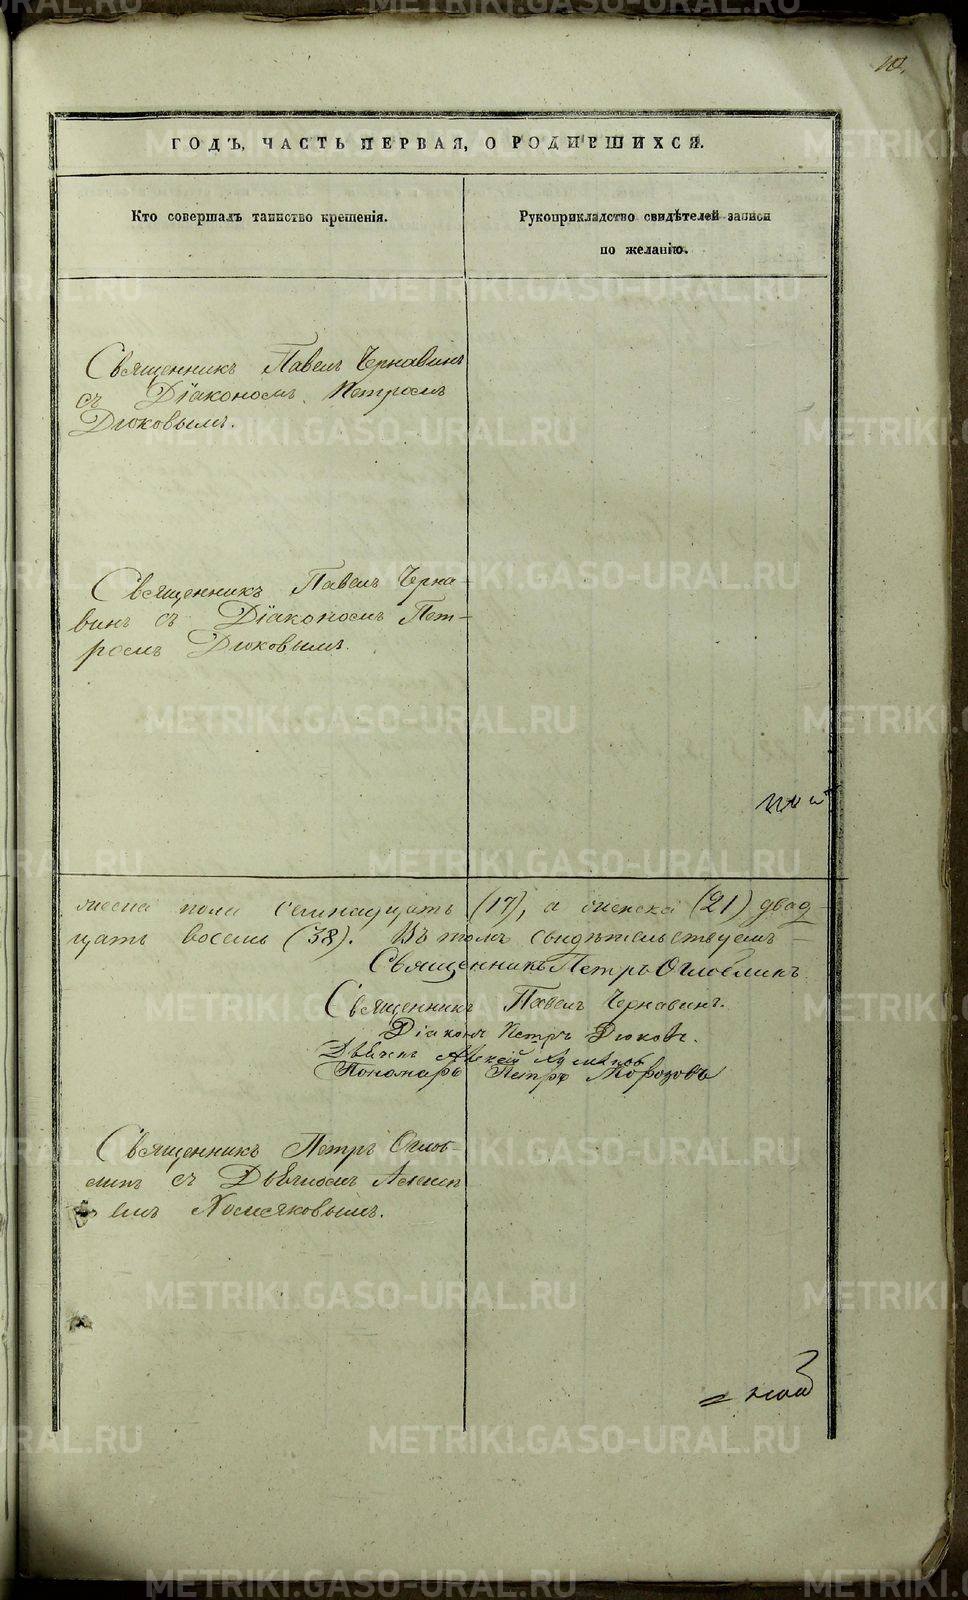 10.
ГОДЪ, ЧАСТЬ ПЕРВАЯ, О РОДИВШИХСЯ.
Кто совершалъ таинство крещенія.
Рукоприкладство свидѣтелей записи
по желанію.
Священникъ Павелъ Чернавинъ
съ Діакономъ Петромъ
Дюковымъ.
Священникъ Павелъ Черна-
винъ съ Діакономъ Пет-
ромъ Дюковымъ.
пола семнадцать (17), а женска (21) двад-
цать восемь (38). Въ томъ свидѣтельствуемъ
Священникъ Петръ Оглоблинъ
Священникъ Павелъ Чернавинъ.
Діаконъ Петръ Дюковъ.
Дьячекъ Алексѣй
Пономарь Петръ Морозовъ
Священникъ Петръ Оглоб-
линъ съ Дьячкомъ Алексѣ-
емъ Хомяковымъ.
METRIKI.GASO-URAL.RU